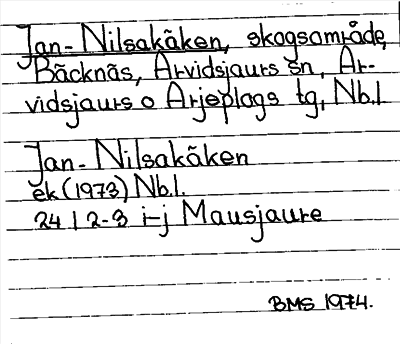 Jan-Nilsakåken, skogsområde,
Bäcknäs, Arvidsjaurs sn, Ar-
vidsjaurs o Arjeplogs tg, Nb.l.
Jan-Nilsakåken
ek (1973) Nb.l.
24 I 2-3 i-j Mausjaure
BMS 1974.